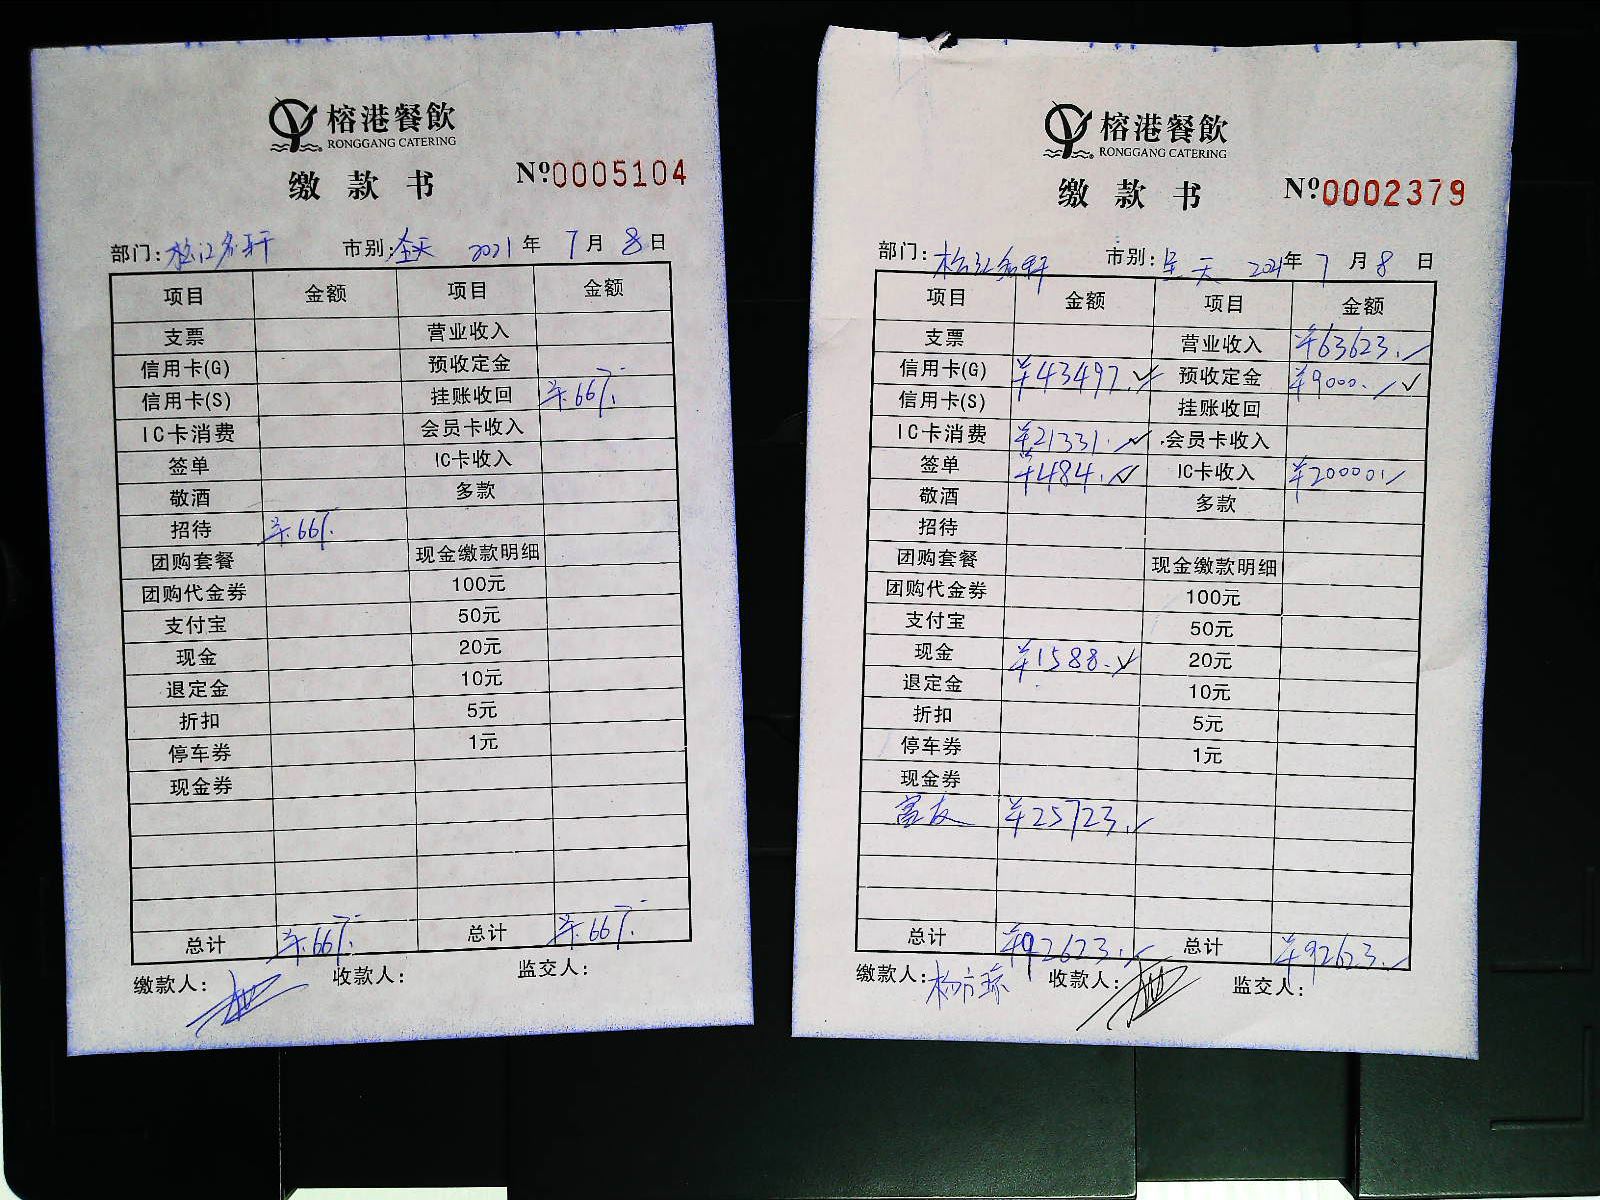 榕港餐飲
RONGGANG CATERING
缴款书
Nº0005104
部门:松江名轩 市别:全天 2021年7月8日
项目 金额 项目 金额
支票 营业收入
信用卡(G) 预收定金
信用卡(S) 挂账收回
IC卡消费 会员卡收入
签单 IC卡收入
敬酒 多款
招待
团购套餐 现金缴款明细
团购代金券 100元
支付宝 50元
现金 20元
退定金 10元
折扣 5元
停车券 1元
现金券
总计 总计
缴款人: 收款人: 监交人:
榕港餐飲
RONGGANG CATERING
缴款书
Nº0002379
部门:松江名轩 市别:全天 2021年7月8日
项目 金额 项目 金额
支票 营业收入 ¥63623.
信用卡(G) ¥43497. 预收定金 ¥9000.
信用卡(S) 挂账收回
IC卡消费 ¥21331. 会员卡收入
签单 ¥484. IC卡收入 ¥20000.
敬酒 多款
招待
团购套餐 现金缴款明细
团购代金券 100元
支付宝 50元
现金 ¥1588. 20元
退定金 10元
折扣 5元
停车券 1元
现金券
富友 ¥25723.
总计 ¥92623. 总计 ¥92623.
缴款人: 收款人: 监交人: